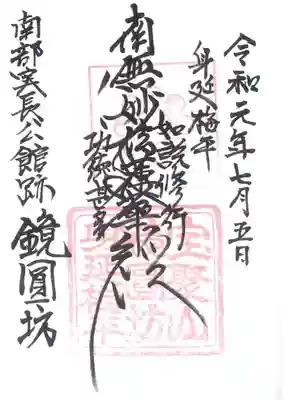 令和元年七月五日
身延梅平
如説修行
南無妙法蓮華経
功徳甚多
南部実長公館跡
鏡圓坊